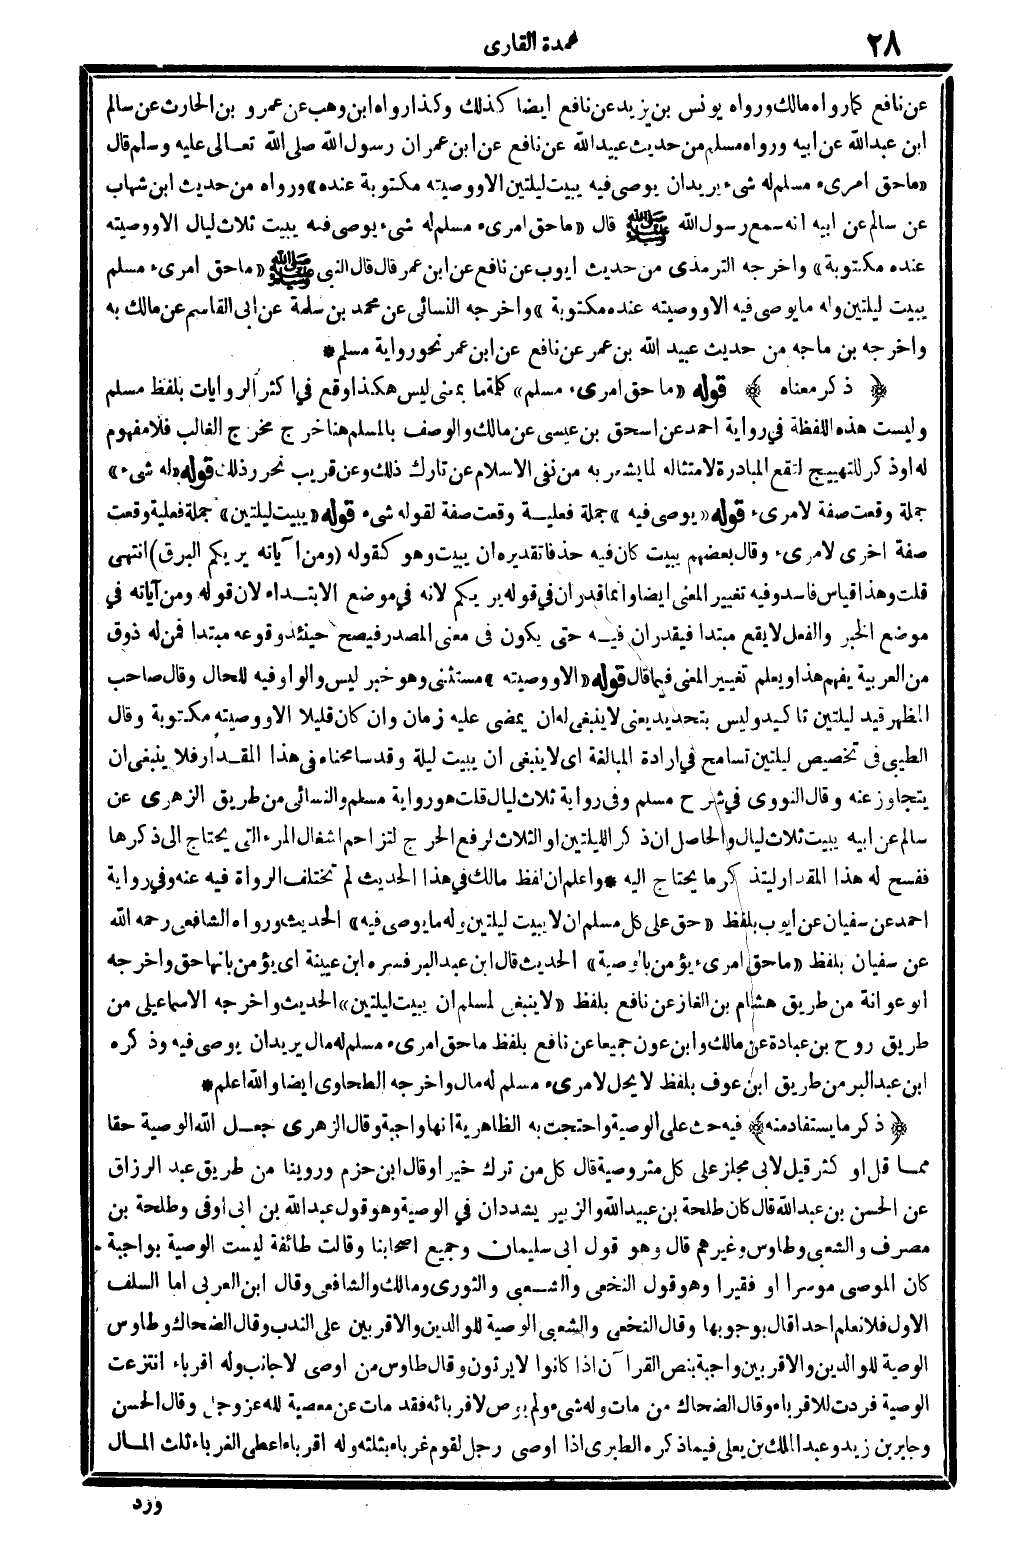 ٢٨
عمدة القارى
عن نافع كما رواه مالك ورواه يونس بن يزيد عن نافع ايضا كذلك وكذا رواه ابن وهب عن عمرو بن الحارث عن سالم
ابن عبد الله عن ابيه ورواه مسلم من حديث عبيد الله عن نافع عن ابن عمران رسول الله صلى الله تعالى عليه وسلم قال
«ما حق امرىء مسلم له شىء يريد ان يوصى فيه يبيت ليلتين الا ووصيته مكتوبة عنده» ورواه من حديث ابن شهاب
عن سالم عن ابيه انه سمع رسول الله ﷺ قال «ما حق امرىء مسلم له شىء يوصى فيه يبيت ثلاث ليال الا ووصيته
عنده مكتوبة» واخرجه الترمذى من حديث ايوب عن نافع عن ابن عمر قال قال النبى ﷺ «ما حق امرىء مسلم
يبيت ليلتين وله ما يوصى فيه الا ووصيته عنده مكتوبة» واخرجه النسائى عن محمد بن سلمة عن ابى القاسم عن مالك به
واخرجه بن ماجه من حديث عبيد الله بن عمر عن نافع عن ابن عمر نحو رواية مسلم *
﴿ ذكر معناه ﴾ قوله «ما حق امرىء مسلم» كلمة ما بمعنى ليس هكذا وقع في اكثر الروايات بلفظ مسلم
وليست هذه اللفظة في رواية احمد عن اسحق بن عيسى عن مالك والوصف بالمسلم هنا خرج مخرج الغالب فلا مفهوم
له او ذكر للتهييج لتقع المبادرة لامتثاله لما يشعر به من نفى الاسلام عن تارك ذلك وعن قريب نحرر ذلك قوله «له شىء»
جملة وقعت صفة لامرىء قوله «يوصى فيه» جملة فعلية وقعت صفة لقوله شىء قوله «يبيت ليلتين» جملة فعلية وقعت
صفة اخرى لامرىء وقال بعضهم يبيت كان فيه حذفا تقديره ان يبيت وهو كقوله (ومن آياته يريكم البرق) انتهى
قلت وهذا قياس فاسد وفيه تغيير المعنى ايضا وانما قدر ان في قوله يريكم لانه في موضع الابتداء لان قوله ومن آياته في
موضع الخبر والفعل لا يقع مبتدا فيقدر ان فيه حتى يكون فى معنى المصدر فيصح حينئذ وقوعه مبتدا فمن له ذوق
من العربية يفهم هذا ويعلم تغيير المعنى فيما قال قوله «الا ووصيته» مستثنى وهو خبر ليس والواو فيه للحال وقال صاحب
المظهر قيد ليلتين تاكيد وليس بتحديد يعنى لا ينبغى له ان يمضى عليه زمان وان كان قليلا الا ووصيته مكتوبة وقال
الطيبى فى تخصيص ليلتين تسامح في ارادة المبالغة اى لا ينبغى ان يبيت ليلة وقد سامحناه فى هذا المقدار فلا ينبغى ان
يتجاوز عنه وقال النووى في شرح مسلم وفى رواية ثلاث ليال قلت هو رواية مسلم والنسائى من طريق الزهرى عن
سالم عن ابيه يبيت ثلاث ليال والحاصل ان ذكر الليلتين او الثلاث لرفع الحرج لتزاحم اشغال المرء التى يحتاج الى ذكرها
ففسح له هذا المقدار ليتذكر ما يحتاج اليه * واعلم ان لفظ مالك في هذا الحديث لم تختلف الرواة فيه عنه وفي رواية
احمد عن سفيان عن ايوب بلفظ «حق على كل مسلم ان لا يبيت ليلتين وله ما يوصى فيه» الحديث ورواه الشافعى رحمه الله
عن سفيان بلفظ «ما حق امرىء يؤمن بالوصية» الحديث قال ابن عبد البر فسره ابن عيينة اى يؤمن بانها حق واخرجه
ابو عوانة من طريق هشام بن الغاز عن نافع بلفظ «لا ينبغى لمسلم ان يبيت ليلتين» الحديث واخرجه الاسماعيلى من
طريق روح بن عبادة عن مالك وابن عون جميعا عن نافع بلفظ ما حق امرىء مسلم له مال يريد ان يوصى فيه وذكره
ابن عبد البر من طريق ابن عوف بلفظ لا يحل لامرىء مسلم له مال واخرجه الطحاوى ايضا والله اعلم *
﴿ ذكر ما يستفاد منه ﴾ فيه حث على الوصية واحتجت به الظاهرية انها واجبة وقال الزهرى جعل الله الوصية حقا
مما قل او كثر قيل لابى مجلز على كل مثر وصية قال كل من ترك خيرا وقال ابن حزم وروينا من طريق عبد الرزاق
عن الحسن بن عبد الله قال كان طلحة بن عبيد الله والزبير يشددان في الوصية وهو قول عبد الله بن ابى اوفى وطلحة بن
مصرف والشعبى وطاوس وغيرهم قال وهو قول ابى سليمان وجميع اصحابنا وقالت طائفة ليست الوصية بواجبة
كان الموصى موسرا او فقيرا وهو قول النخعى والشعبى والثورى ومالك والشافعى وقال ابن العربى اما السلف
الاول فلا نعلم احدا قال بوجوبها وقال النخعى والشعبى الوصية للوالدين والاقربين على الندب وقال الضحاك وطاوس
الوصية للوالدين والاقربين واجبة بنص القرآن اذا كانوا لا يرثون وقال طاوس من اوصى لاجانب وله اقرباء انتزعت
الوصية فردت للاقرباء وقال الضحاك من مات وله شىء ولم يوص لاقربائه فقد مات عن معصية لله عز وجل وقال الحسن
وجابر بن زيد وعبد الملك بن يعلى فيما ذكره الطبرى اذا اوصى رجل لقوم غرباء بثلثه وله اقرباء اعطى الغرباء ثلث المال
ورد